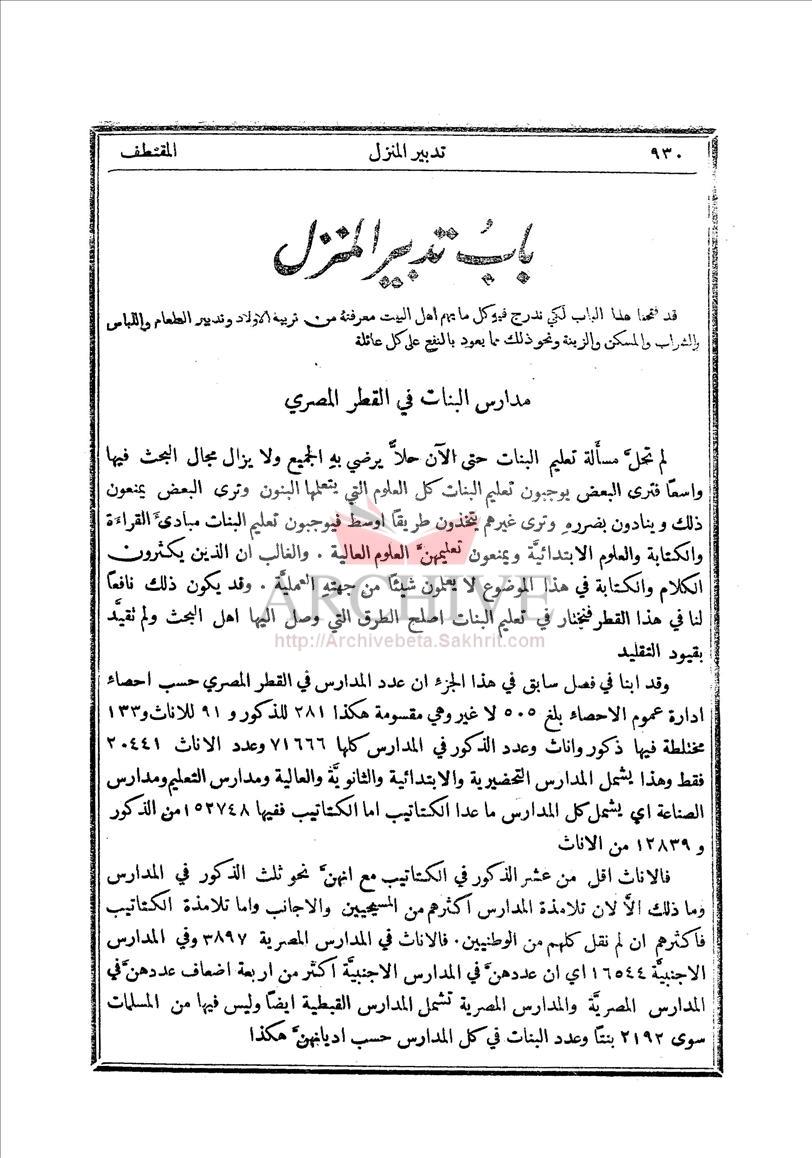 ٩٣٠ تدبير المنزل المقتطف
بابُ تدبير المنزل
قد فتحنا هذا الباب لكي ندرج فيه كل ما يهم اهل البيت معرفته من تربية الاولاد وتدبير الطعام واللباس
والشراب والمسكن والزينة ونحو ذلك مما يعود بالنفع على كل عائلة
مدارس البنات في القطر المصري
لم تحلَّ مسأَلة تعليم البنات حتى الآن حلاًّ يرضي بهِ الجميع ولا يزال مجال البحث فيها
واسعاً فترى البعض يوجبون تعليم البنات كل العلوم التي يتعلمها البنون وترى البعض يمنعون
ذلك وينادون بضررهِ وترى غيرهم يتخذون طريقاً اوسط فيوجبون تعليم البنات مبادئَ القراءة
والكتابة والعلوم الابتدائيَّة ويمنعون تعليمهنَّ العلوم العالية . والغالب ان الذين يكثرون
الكلام والكتابة في هذا الموضوع لا يعلمون شيئاً من جهته العمليَّة . وقد يكون ذلك نافعاً
لنا في هذا القطر فنختار في تعليم البنات اصلح الطرق التي وصل اليها اهل البحث ولم نتقيَّد
بقيود التقليد
وقد ابنا في فصل سابق في هذا الجزء ان عدد المدارس في القطر المصري حسب احصاء
ادارة عموم الاحصاء بلغ ٥٠٥ لا غير وهي مقسومة هكذا ٢٨١ للذكور و ٩١ للاناث و١٣٣
مختلطة فيها ذكور واناث وعدد الذكور في المدارس كلها ٧١٦٦٦ وعدد الاناث ٢٠٤٤١
فقط وهذا يشمل المدارس التحضيرية والابتدائية والثانويَّة والعالية ومدارس التعليم ومدارس
الصناعة اي يشمل كل المدارس ما عدا الكتاتيب اما الكتاتيب ففيها ١٥٢٧٤٨ من الذكور
و ١٢٨٣٩ من الاناث
فالاناث اقل من عشر الذكور في الكتاتيب مع انهنَّ نحو ثلث الذكور في المدارس
وما ذلك الاَّ لان تلامذة المدارس اكثرهم من المسيحيين والاجانب واما تلامذة الكتاتيب
فاكثرهم ان لم نقل كلهم من الوطنيين . فالاناث في المدارس المصرية ٣٨٩٧ وفي المدارس
الاجنبيَّة ١٦٥٤٤ اي ان عددهنَّ في المدارس الاجنبيَّة اكثر من اربعة اضعاف عددهنَّ في
المدارس المصريَّة والمدارس المصرية تشمل المدارس القبطية ايضاً وليس فيها من المسلمات
سوى ٢١٩٢ بنتاً وعدد البنات في كل المدارس حسب اديانهنَّ هكذا
ARCHIVE
http://Archivebeta.Sakhrit.com